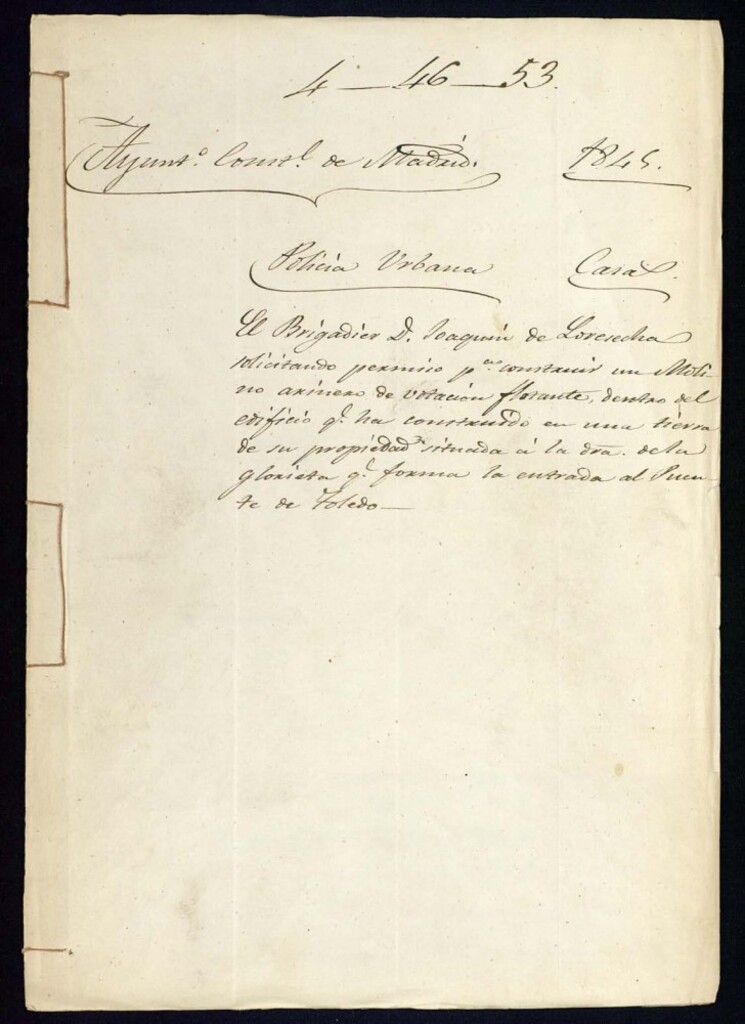 4 — 46 — 53.
Ayunt.º Const.l de Madrid. 1845.
Policia Urbana Casas.
El Brigadier D. Joaquin de Loresecha
solicitando permiso p.ª construir un Moli-
no arinero de rotacion flotante, dentro del
edificio q.e ha construido en una tierra
de su propiedad situada á la dra. de la
glorieta q.e forma la entrada al Puen-
te de Toledo —